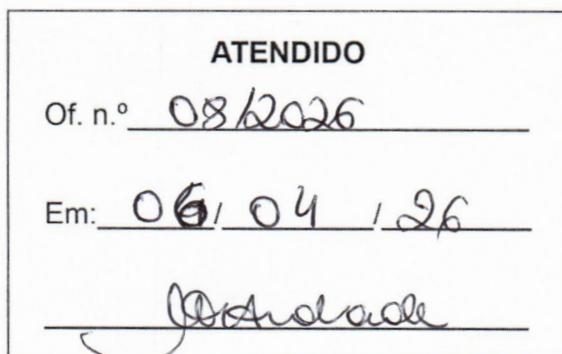 ATENDIDO
Of. n.º 08/2026
Em: 06 / 04 / 26